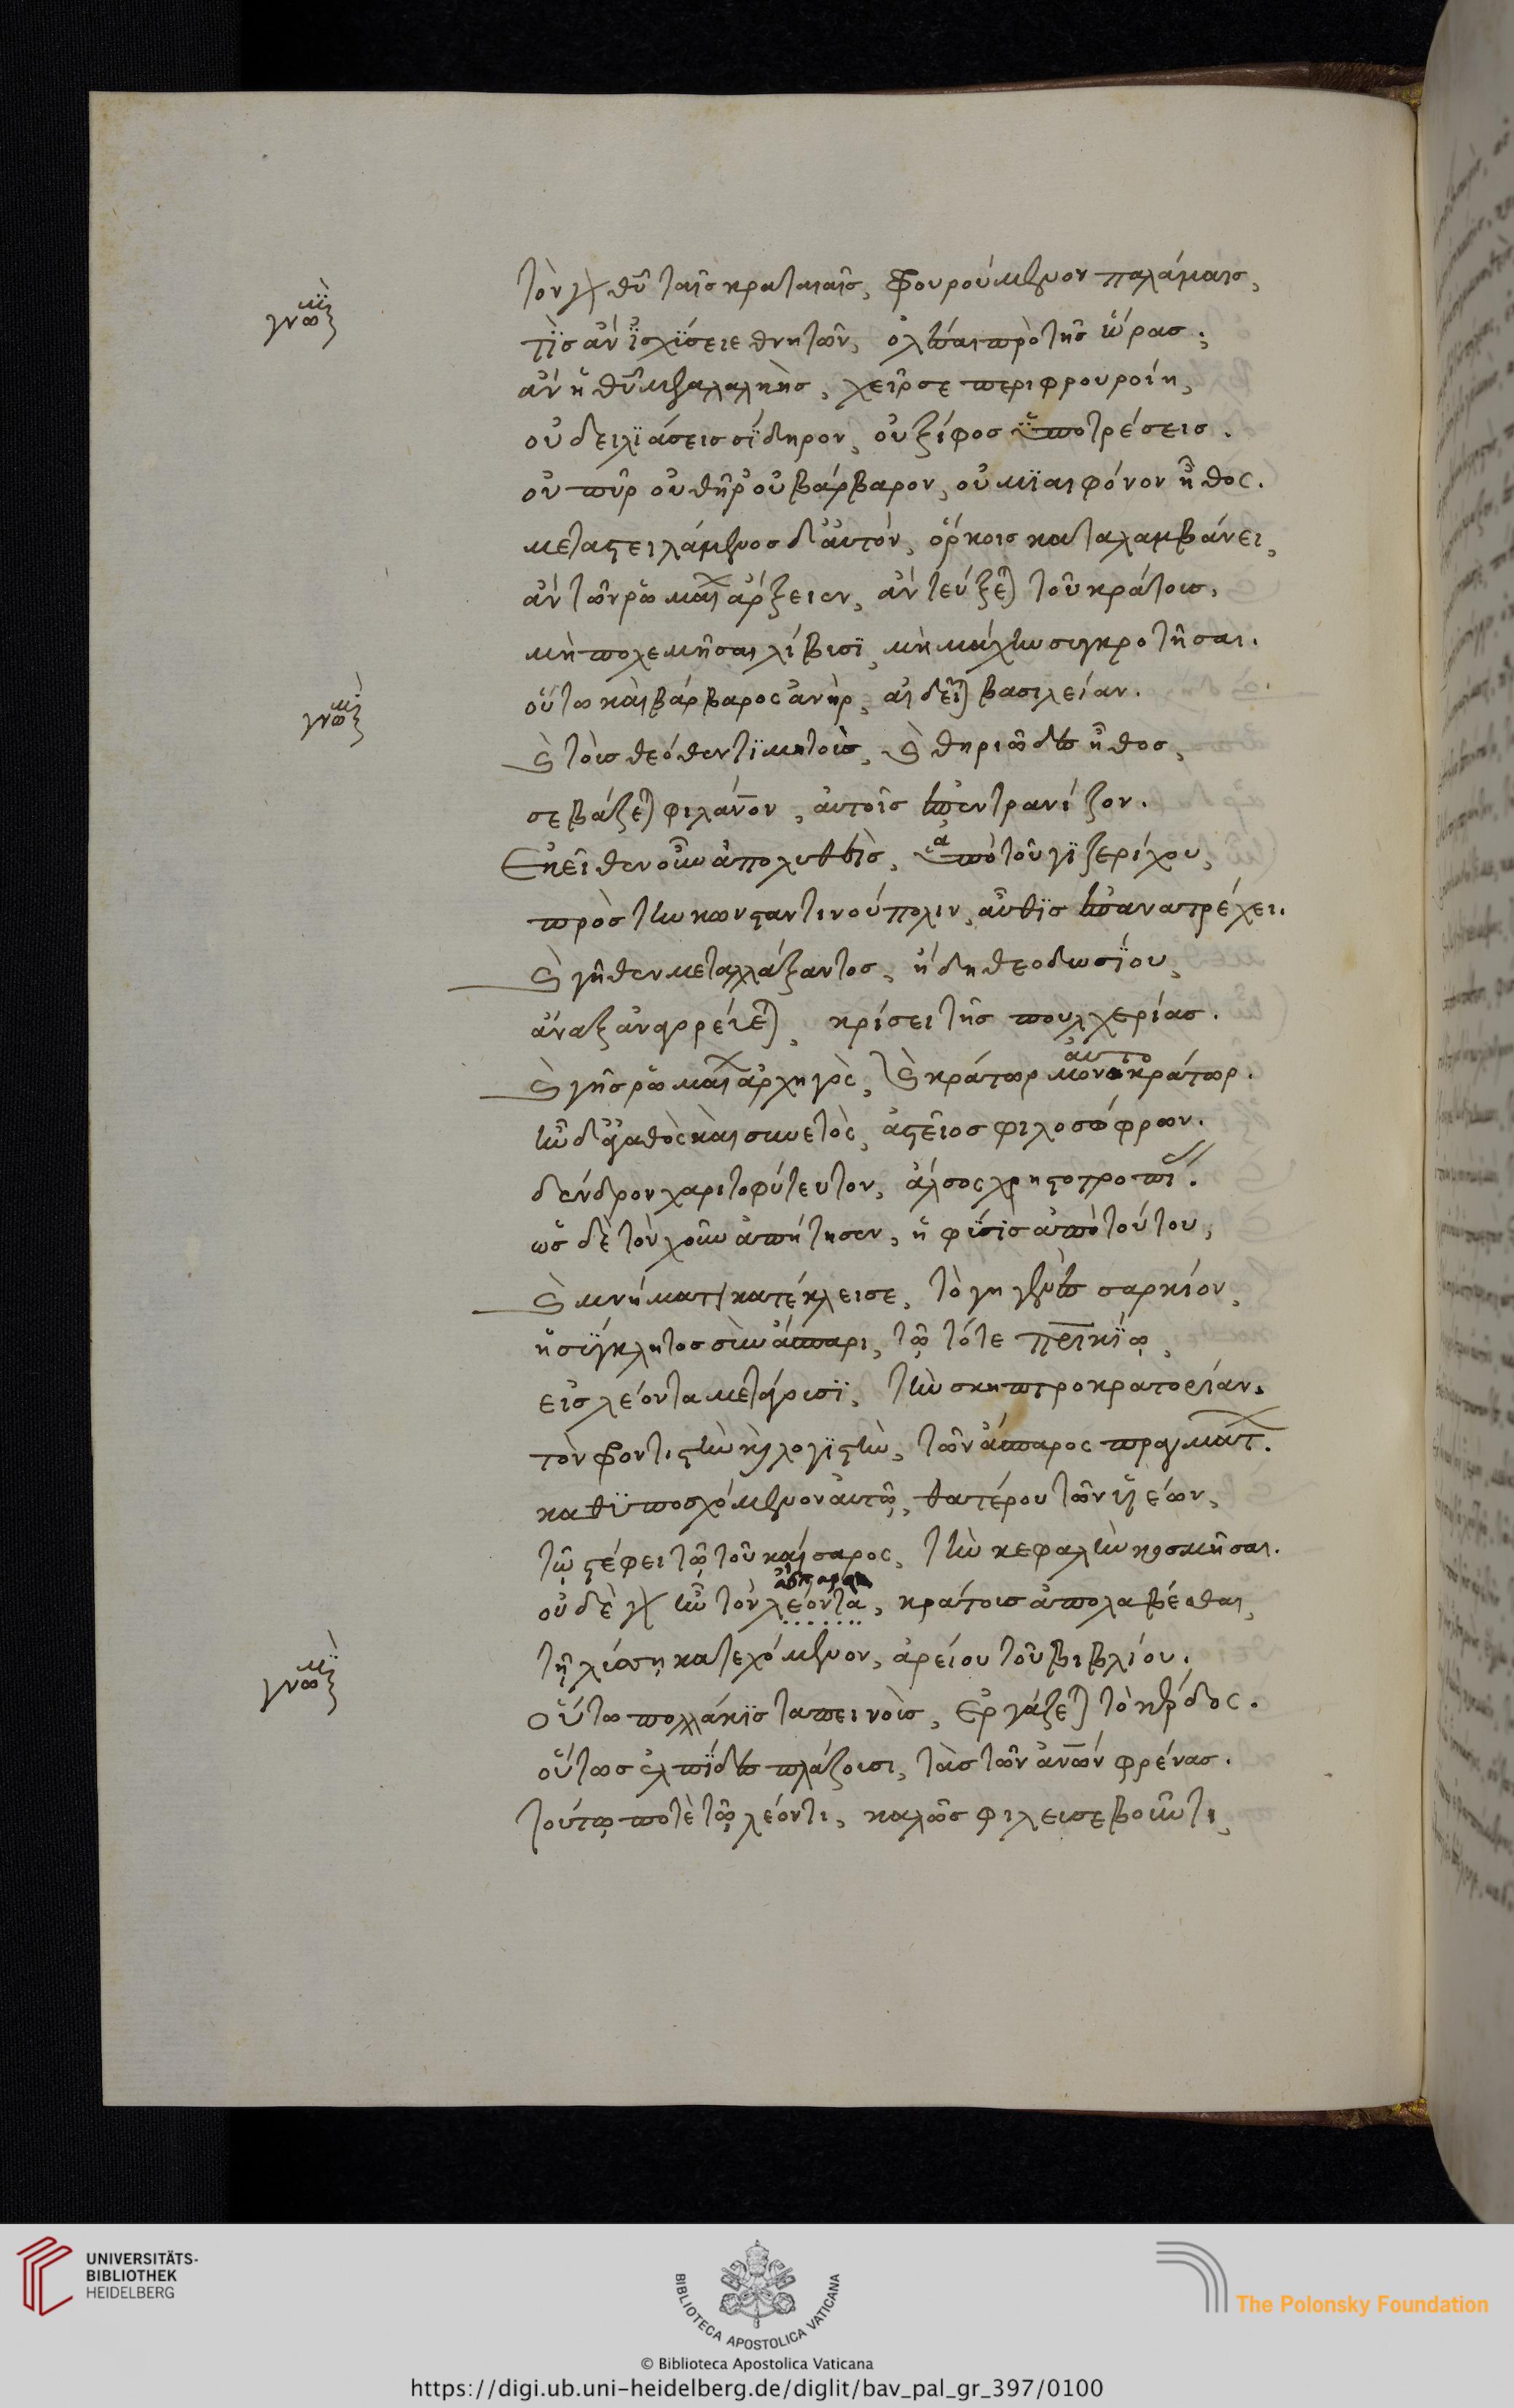 γνώμϊ
τὸν γὰρ θεοῦ ταῖς κραταιαῖς, φρουρούμενον παλάμαις,
τίς ἂν ἰσχύσειε θνητῶν, ὀλέσαι πρὸ τῆς ὥρας;
ἂν ἡ θεοῦ μεγαλαλκὴς, χείρ σε περιφρουροίη,
οὐ δειλϊάσεις σίδηρον, οὐ ξίφος ὑποτρέσεις.
οὐ πῦρ οὐ θῆρ' οὐ βάρβαρον, οὐ μϊαιφόνον ἦθος.
μεταστειλάμενος δ' αὐτὸν, ὅρκοις καταλαμβάνει,
ἂν τῶν ῥωμαίων ἄρξειεν, ἂν τεύξεται τοῦ κράτους,
μὴ πολεμῆσαι λίβυσϊ, μὴ μάχην συγκροτῆσαι.
γνώμϊ
οὕτω καὶ βάρβαρος ἀνὴρ, αἰδεῖται βασιλείαν.
καὶ τοὺς θεόθεν τϊμητοὺς, καὶ θηριῶδες ἦθος,
σεβάζεται φιλάνθρωπον, αὐτοῖς ἐπεντρανίζον.
Ἐκεῖθεν οὖν ἀπολυθεὶς, ἀπὸ τοῦ γϊζερίχου,
πρὸς τὴν κωνσταντινούπολιν, αὖθϊς ἐπανατρέχει.
καὶ γῆθεν μεταλλάξαντος, ἤδη θεοδωσΐου,
ἄναξ ἀναρρεῖται, κρίσει τῆς πουλχερίας.
καὶ γῆς ῥωμαίων ἀρχηγὸς, καὶ κράτωρ μονοκράτωρ.
αὐτο
ἦν δ' ἀγαθὸς καὶ συνετὸς, ἀστεῖος φιλοσώφρων.
δένδρον χαριτοφύτευτον, ἄλσος χρηστοτροπί.
ὡς δὲ τὸν χοῦν ἀπῄτησεν, ἡ φύσϊς ἀπὸ τούτου,
καὶ μνήματι κατέκλεισε, τὸ γηγενὲς σαρκίον,
ἡ σύγκλητος σὺν ἄσπαρι, τῷ τότε πατρικΐῳ,
εἰς λέοντα μετάγουσϊ, τὴν σκηπτροκρατορίαν.
τὸν φροντιστὴν καὶ λογϊστὴν, τῶν ἄσπαρος πραγμάτ.
καθυποσχόμενον αὐτῷ, θατέρου τῶν υἱέων,
τῷ στέφει τῷ τοῦ καίσαρος, τὴν κεφαλὴν κοσμῆσαι.
ἄσπαρα
οὐδὲ γὰρ ἦν τὸν λέοντα, κράτους ἀπολαβέσθαι,
τῇ λύσσῃ κατεχόμενον, ἀρείου τοῦ βιβλίου.
γνώμϊ
Οὕτω πολλάκϊς ταπεινοὺς, ἐργάζεται τὸ κέρδος.
οὕτως ἐλπΐδες πλάζουσι, τὰς τῶν ἀνθρώπων φρένας.
τούτῳ ποτὲ τῷ λέοντι, καλῶς φιλευσεβοῦντι,
UNIVERSITÄTS-
BIBLIOTHEK
HEIDELBERG
BIBLIOTECA APOSTOLICA VATICANA
The Polonsky Foundation
© Biblioteca Apostolica Vaticana
https://digi.ub.uni-heidelberg.de/diglit/bav_pal_gr_397/0100